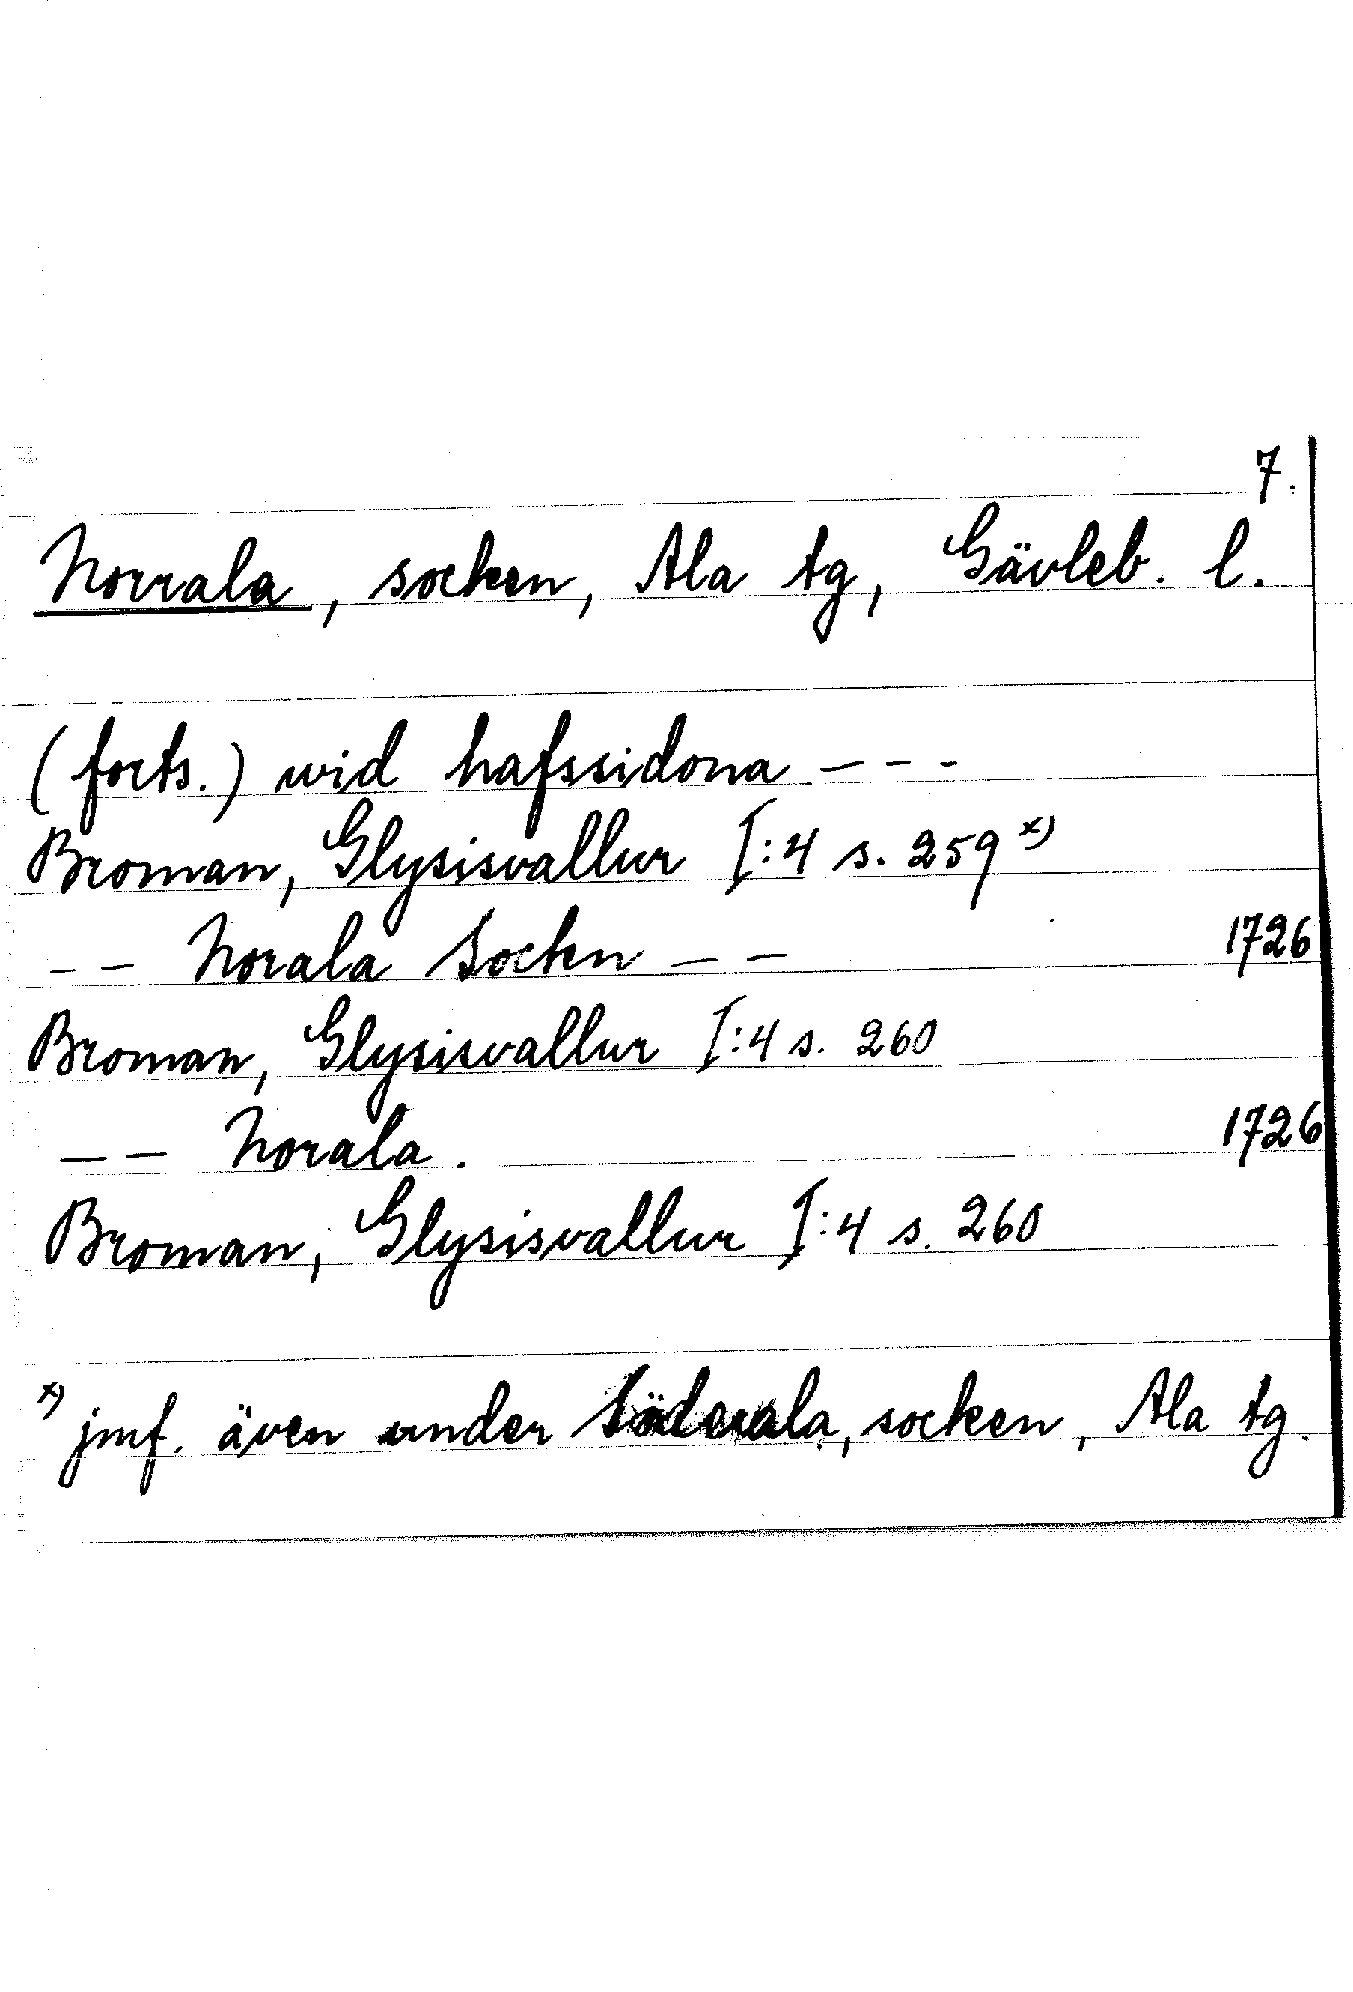 7.
Norrala, socken, Ala tg, Gävleb. l.
(forts.) wid hafssidona – – –
Broman, Glysisvallur I:4 s. 259 x)
– – Norala Sockn – – 1726
Broman, Glysisvallur I:4 s. 260
– – Norala. 1726
Broman, Glysisvallur I:4 s. 260
x) jmf. även under Söderala, socken, Ala tg.